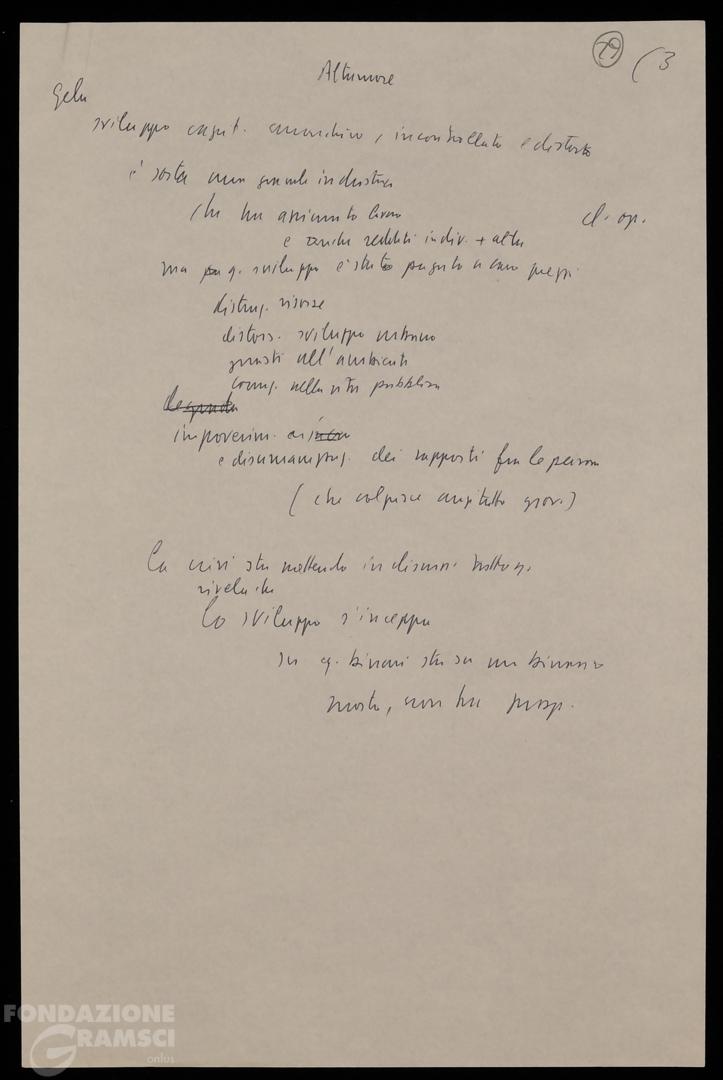 29 (3
Altrimore
Gela
sviluppo capit. anarchico, incontrollato e distorto
è sorta una grande industria
che ha assicurato lavoro
cl. op.
e anche redditi indiv. + alti
ma q. sviluppo è stato pagato a caro prezzo
distruz. risorse
distors. sviluppo urbano
guasti all'ambiente
corruz. nella vita pubblica
impoverim.
e disumanizzaz. dei rapporti fra le persone
(che colpisce anzitutto giov.)
La crisi sta mettendo in discuss. tutto q.
rivela che
Lo sviluppo s'inceppa
su q. binari sta su un binario
morto, non ha prosp.
FONDAZIONE
GRAMSCI
onlus